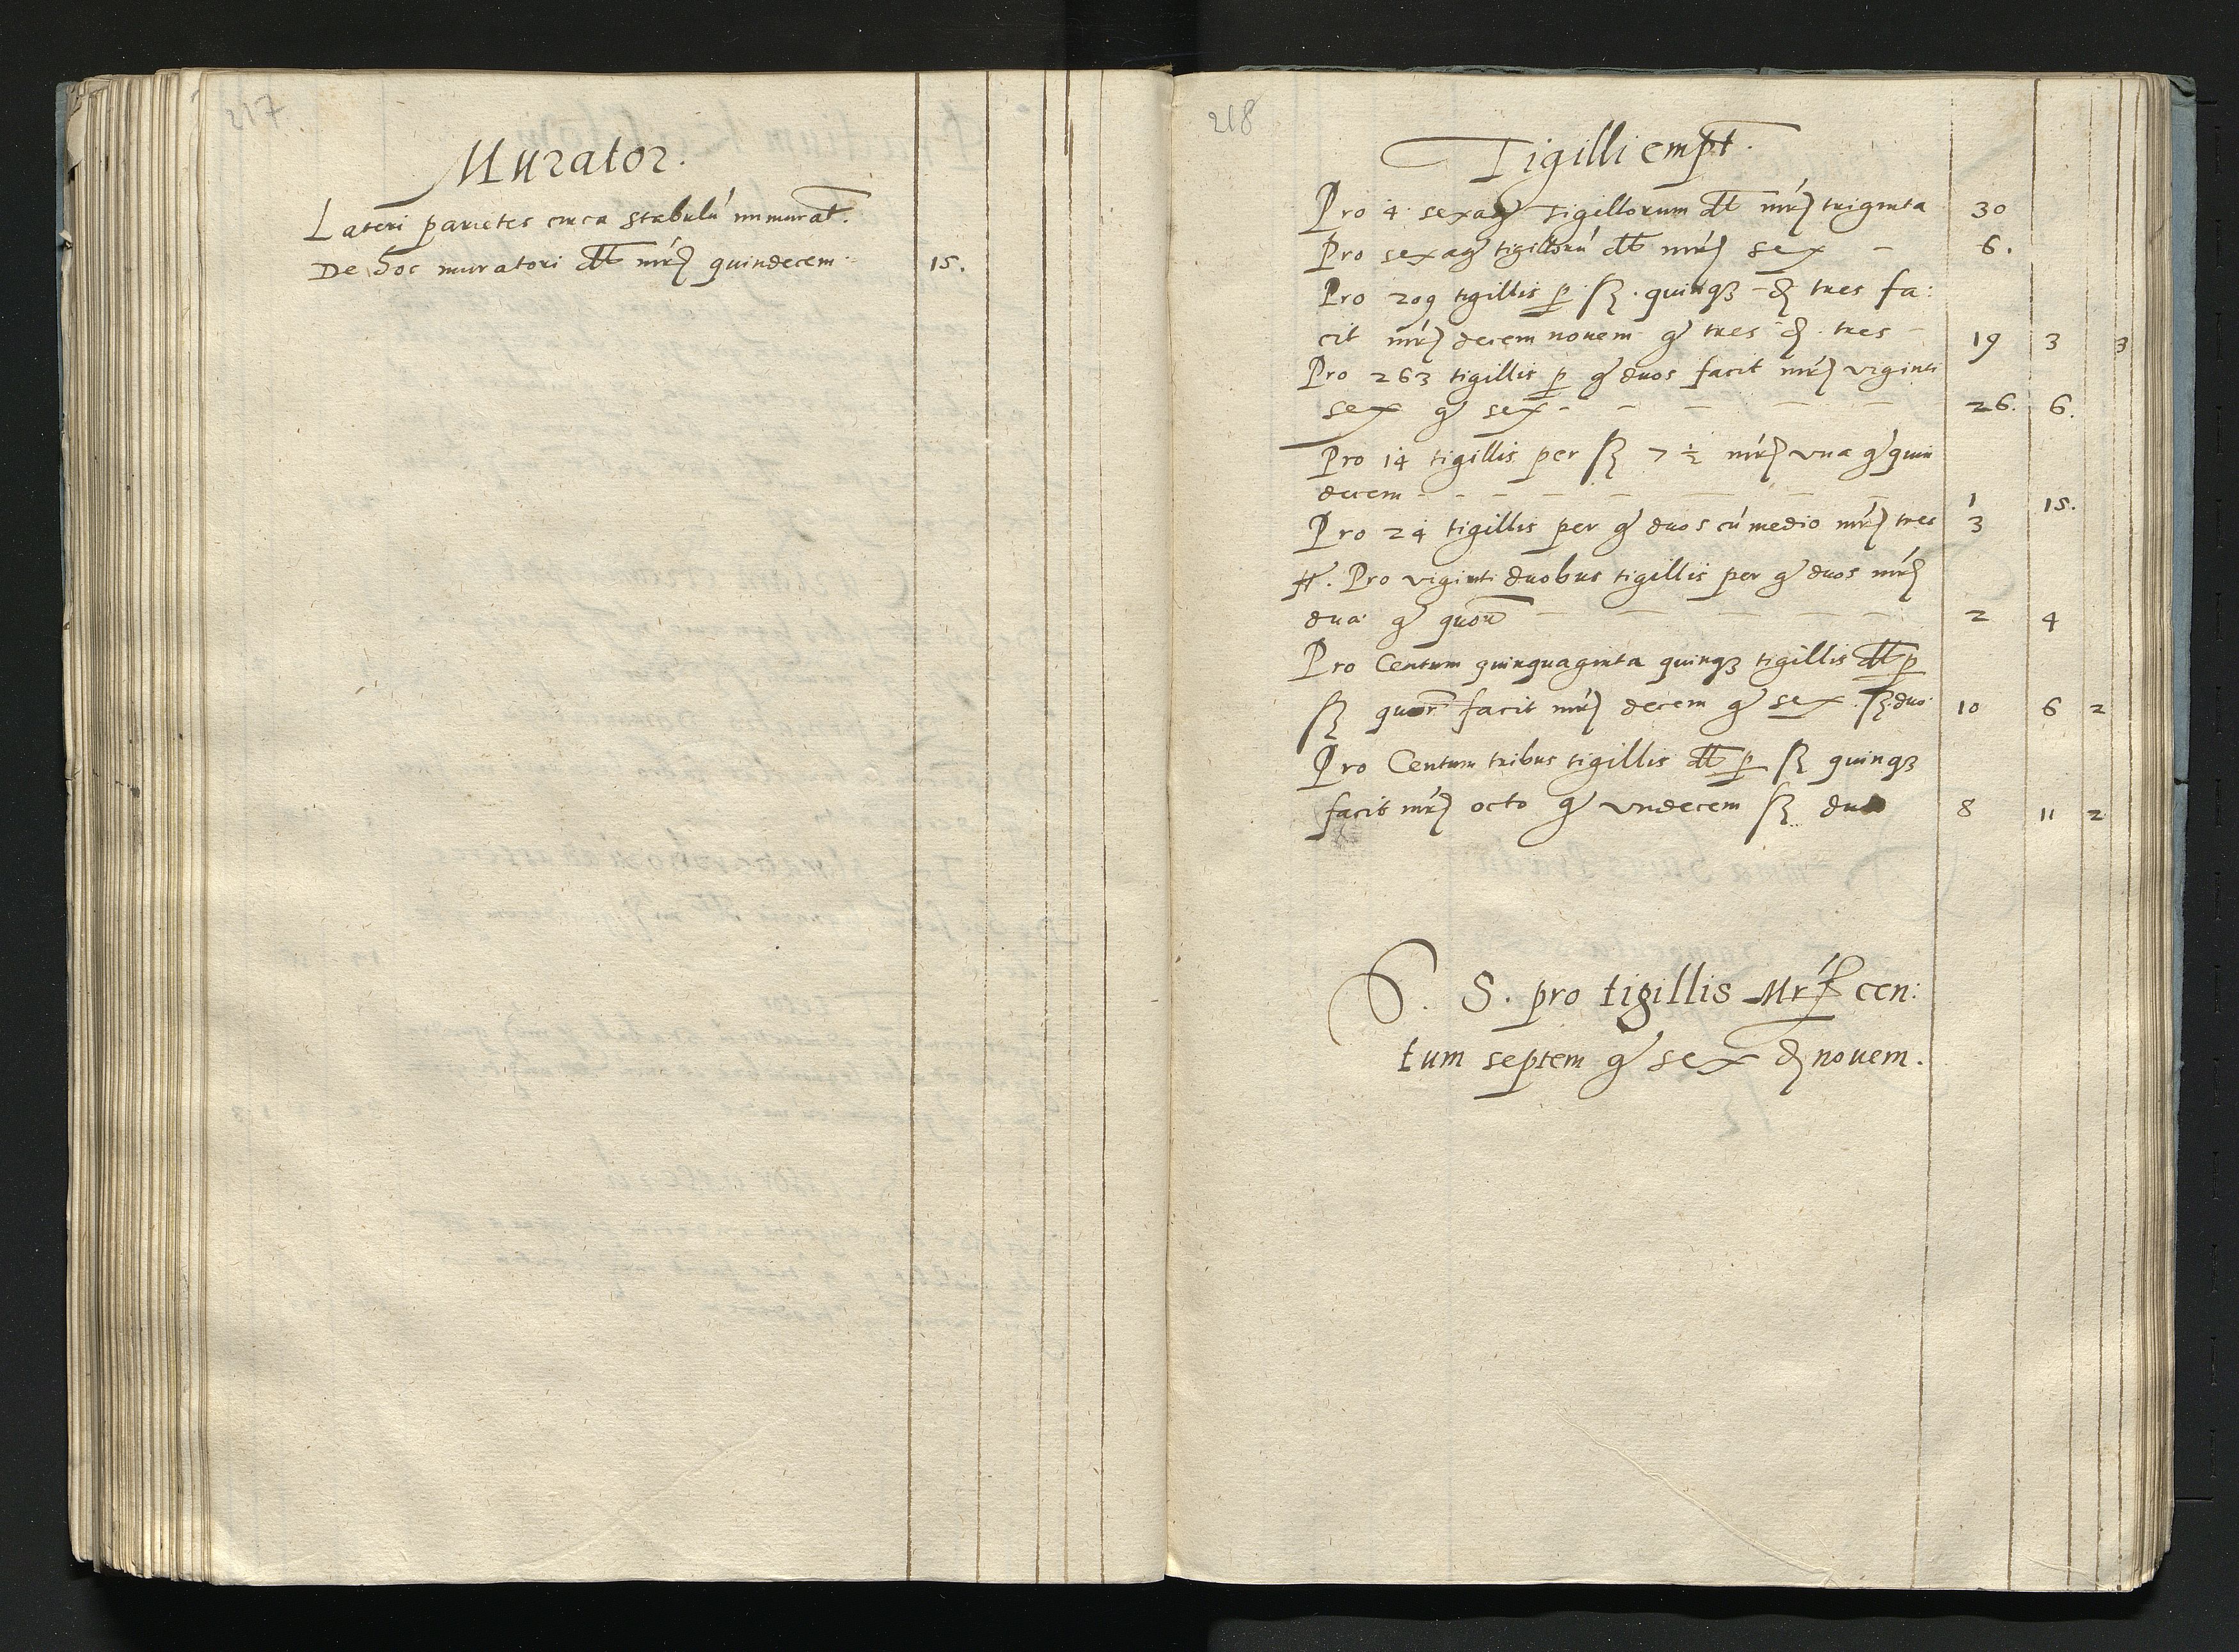 217
Murator.
Lateri parietes circa stabulũ immurat.
De hoc muratori dtt mrć quindecem 15.
218
Tigilli empt.
Pro 4 sexag Tigillorum dtt mrć triginta 30
Pro sexag tigillorũ dtt mrć sex – 6.
Pro 209 tigillis p ſʒ quinqʒ – ₰ tres fa:
cit mrć decem novem gͬ tres ₰ tres 19 3 3
Pro 263 tigillis p gͬ duos facit mrć viginti
sex gͬ sex - - - - - 26. 6.
Pro 14 tigillis per ſʒ 7 ½ mrć vna gͬ quin
decem - - - - - 1 15.
Pro 24 tigillis per gͬ duos cũ medio mrć tres 3
Pro viginti duobus tigillis per gͬ duos mrć
dua gͬ quor - - - - 2 4
Pro Centum quinquaginta quinqʒ tigillis dtt p
ſʒ quor facit mrć decem gͬ sex ſʒ duo 10 6 2
Pro Centum tribus tigillis dtt p ſʒ quinqʒ
facit mrć octo gͬ vndecem ſʒ duo 8 11 2
S. S. pro tigillis Mrć cen:
tum septem gͬ sex ₰ novem.